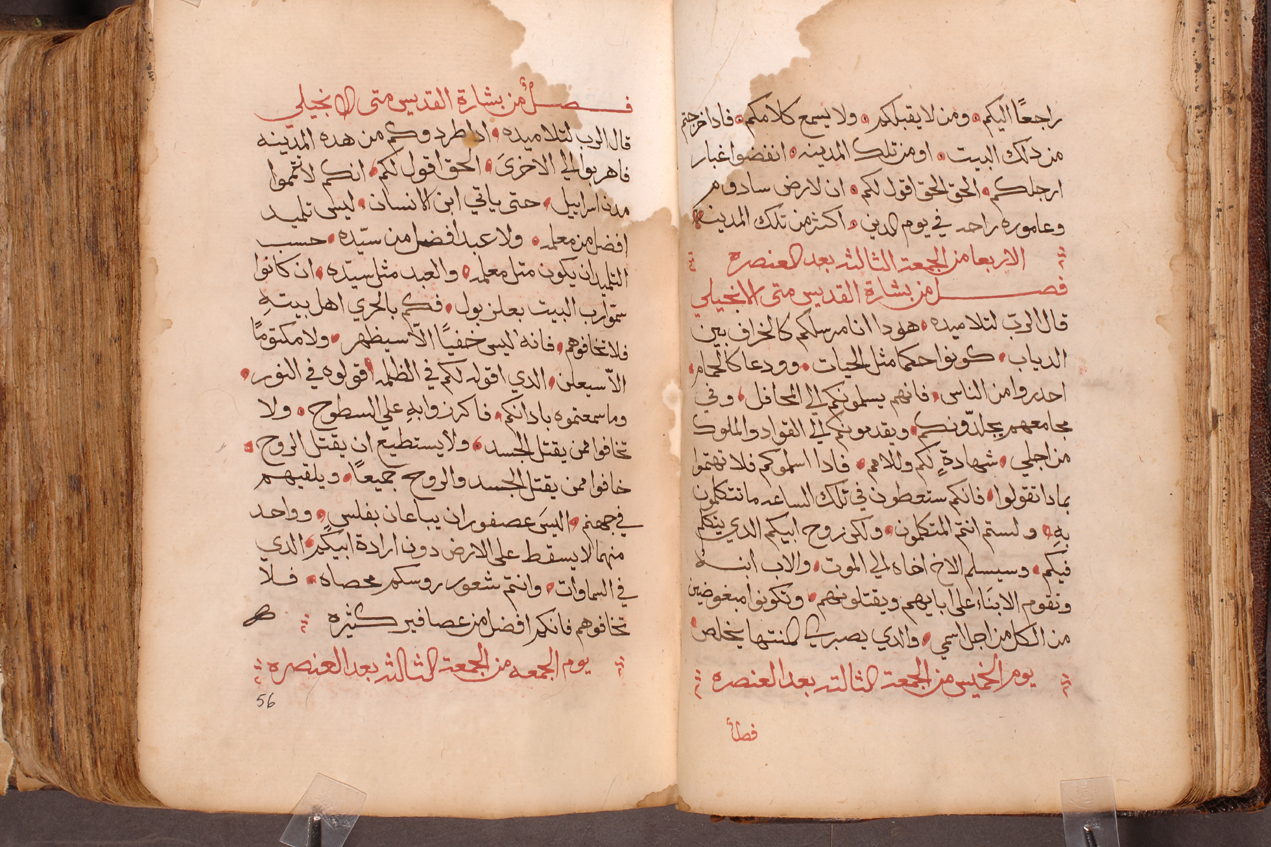 راجعًا اليكم ومن لا يقبلكم ولا يسمع كلامكم فادا خرجتم
من دلك البيت اومن تلك المدينه انفضوا غبار
ارجلكم الحق الحق اقول لكم ان لارض سادوم
وعاموره راحه في يوم الدين اكثر من تلك المدينه
الاربعا من الجمعة الثالثه بعد العنصره
فصل من بشارة القديس متى الانجيلي
قال الربّ لتلاميده هودا انا مرسلكم كالخراف بين
الدياب كونوا حكما مثل الحيات وودعا كالحمام
احدروا من الناس فانهم يسلمونكم الي المحافل وفي
مجامعهم يجلدونكم ويقدمونكم الي القواد والملوك
من اجلي شهادةٍ لكم وللامم فادا اسلموكم فلا تهتموا
بمادا تقولوا فانكم ستعطون في تلك الساعه ما تتكلمون
بهِ ولستم انتم المتكلمون ولكن روح ابيكم الدي يتكلم
فيكم وسيسلم الاخ اخاه الي الموت والاب ابنه
وتقوم الابنَا على ابايهم ويقتلونهم وتكونوا مبغوضين
من الكل من اجل اسمي والدي يصبر الي المنتها يخلص
يوم الخميس من الجمعة الثالثه بعد العنصره
فصلٌ
فصلٌ من بشارة القديس متى الانجيلي
قال الرب لتلاميده ادا طردوكم من هده المدينه
فاهربوا الي الاخرىَ الحق اقول لكم انكم لا تتمموا
مدن اسراييل حتى ياتي ابن الانسان ليس تلميد
افضل من معلمه ولا عبد افضل من سيّده حسب
التلميد ان يكون مثل معلمه والعبد مثل سيّده ان كانوا
سموا رب البيت بعلزبول فكم بالحري اهل بيتهِ
فلا تخافوهم فانه ليس خفيًا الّا سيظهر ولا مكتومًا
الّا سيعلن الدي اقوله لكم في الظلمه قولوه في النور
وما سمعتموه بادانكم فاكرزوا بهِ على السطوح ولا
تخافوا ممن يقتل الجسد ولا يستطيع ان يقتل الروح
خافوا ممن يقتل الجسد والروح جميعًا ويلقيهم
في جهنم اليسَ عصفوران يباعان بفلس وواحد
منهما لا يسقط على الارض دون ارادة ابيكم الدي
في السماوات وانتم شعور روسكم محصاه فلا
تخافوهم فانكم افضل من عصافير كثيره
يوم الجمعه من الجمعة الثالثه بعد العنصره
56